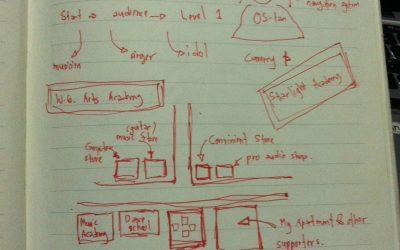 navigation system
Start → audience → Level 1
OS-tan
musician
singer
idol
Currency
W.G. Arts Academy
Starlight Academy
(guitar)
music Store
Computer
store
Convinient Store
pro audio shop.
Music
Academy
Dance
school
My Apartment & other
supporters.